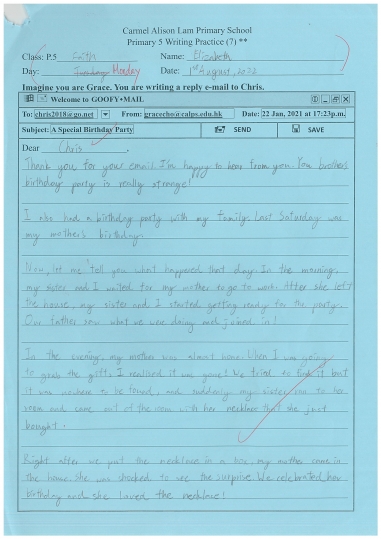 Carmel Alison Lam Primary School
Primary 5 Writing Practice (7) **
Class: P.5 Faith Name: Elizabeth
Day: Tuesday Monday Date: 1st August, 2022
Imagine you are Grace. You are writing a reply e-mail to Chris.
Welcome to GOOFY•MAIL
To: chris2018@go.net From: gracecho@calps.edu.hk Date: 22 Jan, 2021 at 17:23p.m.
Subject: A Special Birthday Party SEND SAVE
Dear Chris,
Thank you for your email. I'm happy to hear from you. You brothers
birthday party is really strange!
I also had a birthday party with my family. Last Saturday was
my mother's birthday.
Now, let me tell you what happened that day. In the morning,
my sister and I waited for my mother to go to work. After she left
the house, my sister and I started getting ready for the party.
Our father saw what we were doing and joined in!
In the evening, my mother was almost home. When I was going
to grab the gifts, I realised it was gone! We tried to find it but
it was nowhere to be found, and suddenly my sister ran to her
room and came out of the room with her necklace that she just
bought.
Right after we put the necklace in a box, my mother came in
the home. She was shocked to see the surprise. We celebrated her
birthday and she loved the necklace!